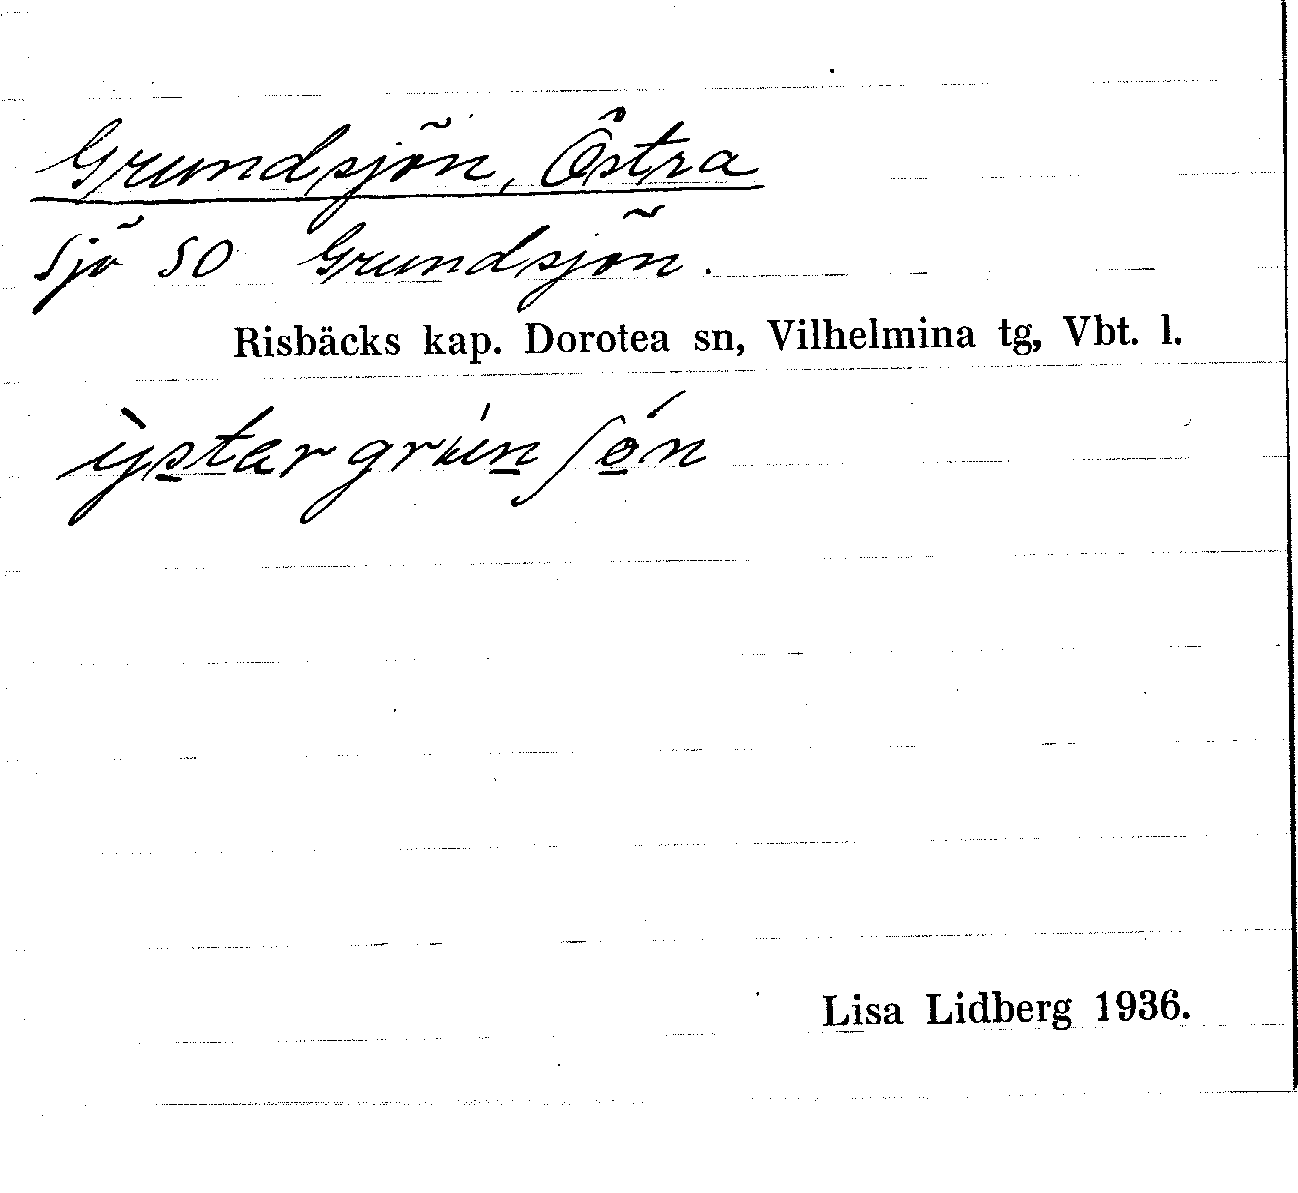 Grundsjön, Östra
Sjö SO Grundsjön.
Risbäcks kap. Dorotea sn, Vilhelmina tg, Vbt. l.
ỳstar grúnʃón
Lisa Lidberg 1936.